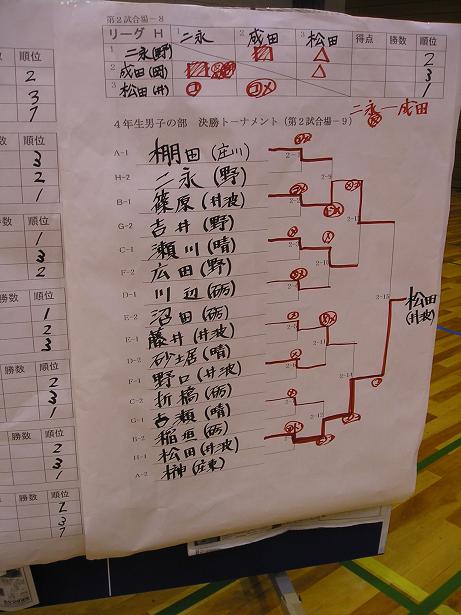 第2試合場-8
リーグ H 二永 成田 松田 得点 勝数 順位
1 二永(野) 2
2 成田(岡) 3
3 松田(井) 1
二永ー成田
4年生男子の部 決勝トーナメント (第2試合場-9)
A-1 棚田(庄川)
H-2 二永(野)
B-1 篠原(井波)
G-2 吉井(野)
C-1 瀬川(晴)
F-2 広田(野)
D-1 川辺(砺)
E-2 沼田(砺)
E-1 藤井(井波)
D-2 砂土居(晴)
F-1 野口(井波)
C-2 折橋(砺)
G-1 古瀬(晴)
B-2 稲垣(砺)
H-1 松田(井波)
A-2 榊(庄東)
松田
(井波)
2-9
2-10
2-11
2-12
2-13
2-14
2-15
勝数 順位
2
3
1
3
2
1
勝数 順位
1
3
2
勝数 順位
1
2
3
勝数 順位
2
3
1
勝数 順位
2
3
1
勝数 順位
2
3
1